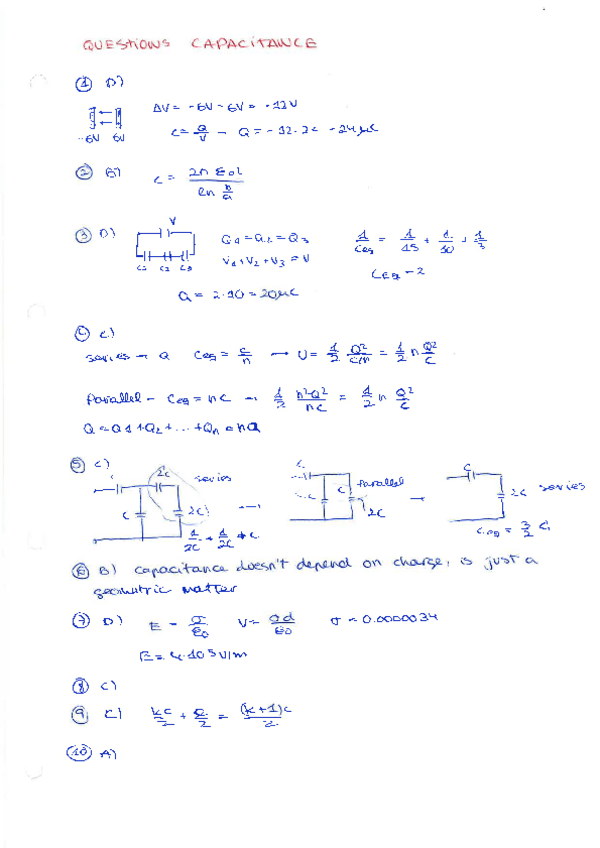 QUESTIONS CAPACITANCE
① D)
ΔV = -6V - 6V = -12V
-6V 6V
C = Q/V → Q = -12·2C -24μC
② B)
C = 2π ε₀ L / ln b/a
③ D)
V
C1 C2 C3
Q1 = Q2 = Q3
V1 + V2 + V3 = V
1/Ceq = 1/15 + 1/10 + 1/3
Ceq = 2
Q = 2·10 = 20μC
④ C)
series → Q Ceq = C/n → U = 1/2 Q²/C/n = 1/2 n Q²/C
Parallel - Ceq = nC → 1/2 n²Q²/nC = 1/2 n Q²/C
Q = Q1 + Q2 + ... + Qn = nQ
⑤ C)
2C series
C 2C
1/2C + 1/2C → C
C parallel
2C
C
2C series
Ceq = 3/2 C
⑥ B) capacitance doesn't depend on charge, is just a
geometric matter
⑦ D) E = σ/ε₀ V = σd/ε₀ σ = 0.0000034
E = 4·10⁵ V/m
⑧ C)
⑨ C) kC/2 + C/2 = (k+1)C/2
⑩ A)